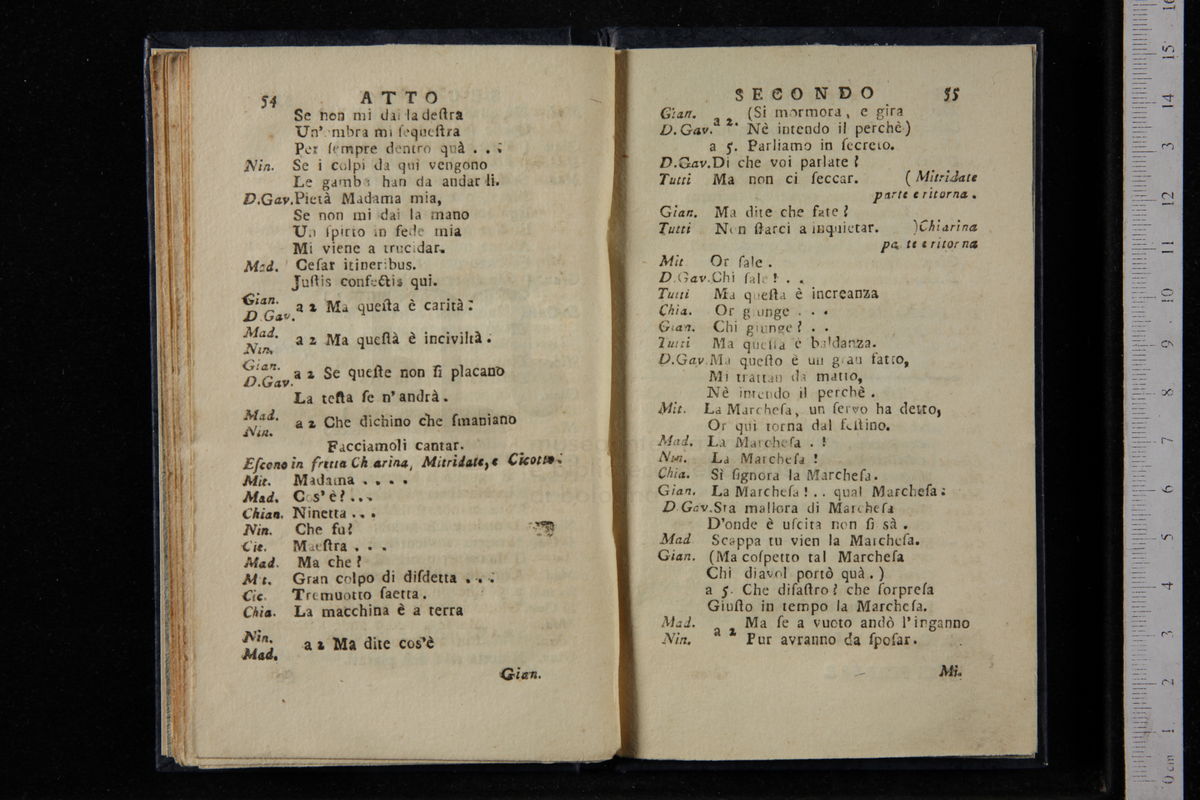 54 ATTO
Se non mi dai la deſtra
Un' ombra mi ſequeſtra
Per ſempre dentro quà . . .
Nin. Se i colpi da qui vengono
Le gambe han da andar lì.
D.Gav. Pietà Madama mia,
Se non mi dai la mano
Un ſpirto in fede mia
Mi viene a trucidar.
Mad. Ceſar itineribus.
Juſtis confectis qui.
Gian.
D.Gav. a 2 Ma queſta è carità:
Mad.
Nin. a 2 Ma queſtà è inciviltà.
Gian.
D.Gav. a 2 Se queſte non ſi placano
La teſta ſe n'andrà.
Mad.
Nin. a 2 Che dichino che ſmaniano
Facciamoli cantar.
Eſcono in fretta Chiarina, Mitridate, e Cicotto.
Mit. Madama . . . .
Mad. Cos'è? . . .
Chian. Ninetta . . .
Nin. Che fu?
Cic. Maeſtra . . .
Mad. Ma che?
Mit. Gran colpo di diſdetta . . .
Cic. Tremuotto ſaetta.
Chia. La macchina è a terra
Nin.
Mad. a 2 Ma dite cos'è
Gian.
SECONDO 55
Gian. a 2. (Si mormora, e gira
D.Gav. Nè intendo il perchè)
a 5. Parliamo in ſecreto.
D.Gav. Di che voi parlate?
Tutti Ma non ci ſeccar. (Mitridate
parte e ritorna.
Gian. Ma dite che fate?
Tutti Non ſtarci a inquietar. )Chiarina
parte e ritorna
Mit Or ſale.
D.Gav. Chi ſale! . .
Tutti Ma queſta è increanza
Chia. Or giunge . . .
Gian. Chi giunge? . .
Tutti Ma queſta è baldanza.
D.Gav. Ma queſto è un gran fatto,
Mi trattan da matto,
Nè intendo il perchè.
Mit. La Marcheſa, un ſervo ha detto,
Or qui torna dal feſtino.
Mad. La Marcheſa . !
Nin. La Marcheſa !
Chia. Sì ſignora la Marcheſa.
Gian. La Marcheſa! . . qual Marcheſa:
D Gav. Sta mallora di Marcheſa
D'onde è uſcita non ſi sà.
Mad Scappa tu vien la Marcheſa.
Gian. (Ma coſpetto tal Marcheſa
Chi diavol portò quà.)
a 5. Che diſaſtro? che ſorpreſa
Giuſto in tempo la Marcheſa.
Mad. a 2 Ma ſe a vuoto andò l'inganno
Nin. Pur avranno da ſpoſar.
Mi.